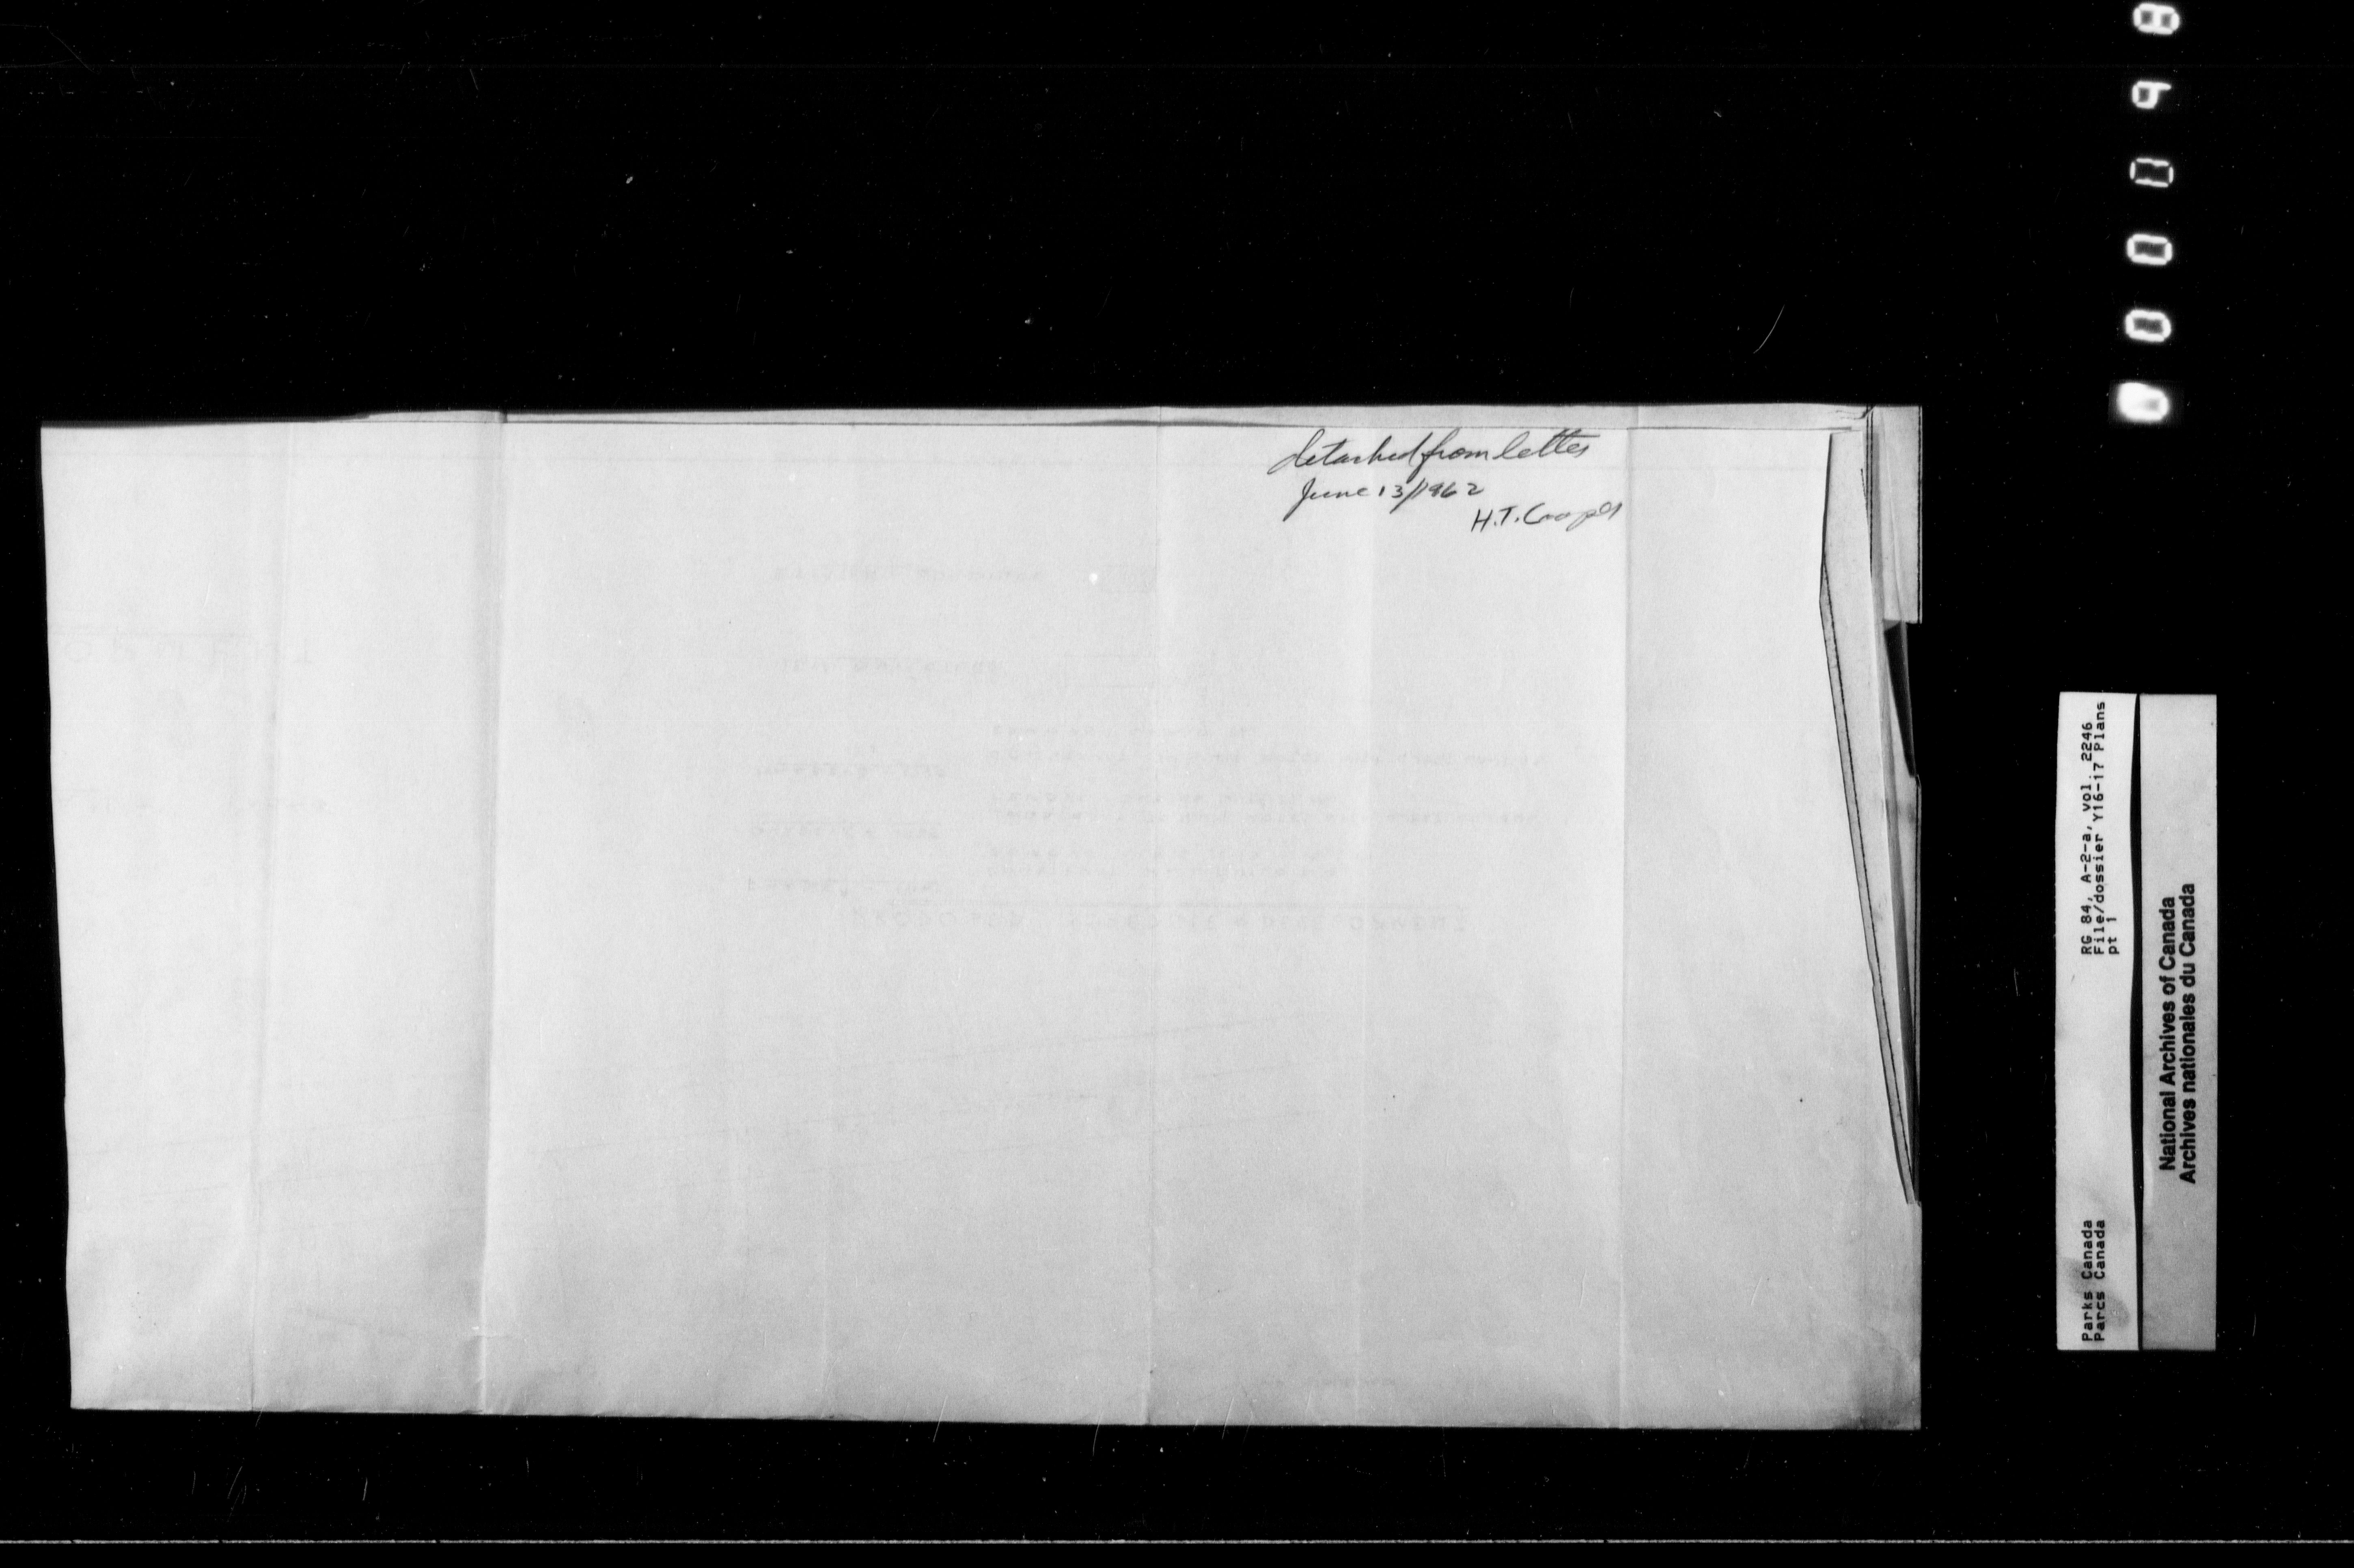 detached from letter
June 13/1962
H.T. Cooper
000098
RG 84, A-2-a, vol. 2246
File/dossier Y16-17 Plans
pt 1
Parks Canada
Parcs Canada
National Archives of Canada
Archives nationales du Canada